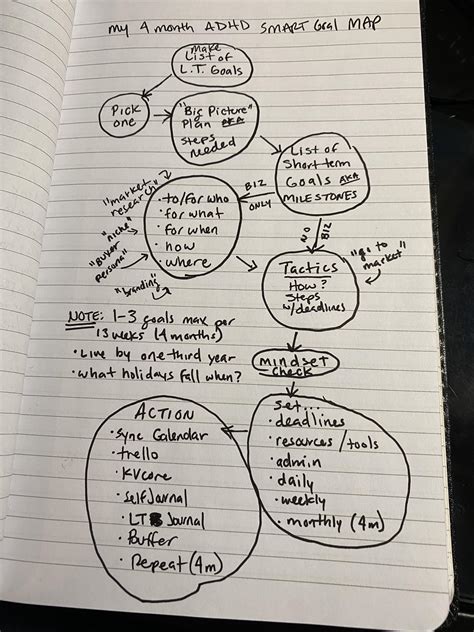 my 4 month ADHD SMART Goal MAP
make
List of
L.T. Goals
Pick
one
"Big Picture"
Plan AKA
Steps
needed
List of
Short term
Goals AKA
MILESTONES
BIZ
ONLY
NO
BIZ
"market
research"
"niche"
"Buyer
persona"
"branding"
• to/for who
• for what
• for when
• how
• where
Tactics
How?
Steps
w/deadlines
"go to
market"
NOTE: 1-3 goals max per
13 weeks (4 months)
• Live by one-third year
• what holidays fall when?
mindset
check
Set...
• deadlines
• resources/tools
• admin
• daily
• weekly
• monthly (4m)
ACTION
• Sync Calendar
• trello
• KVcore
• SelfJournal
• LT Journal
• Buffer
• Repeat (4m)